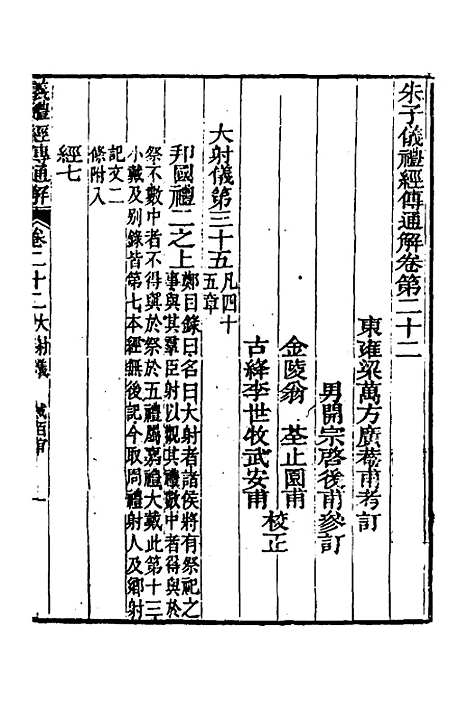 朱子儀禮經傳通解卷第二十二
東雍梁萬方廣菴甫考訂
男開宗啓後甫參訂
金陵翁荃止園甫
古絳李世牧武安甫
校正
大射儀第三十五
凡四十
五章
邦國禮二之上
鄭目錄曰名曰大射者諸侯將有祭祀之
事與其羣臣射以觀其禮數中者得與於
祭不數中者不得與於祭於五禮屬嘉禮大戴此第十三
小戴及別錄皆第七本經無後記今取問禮射人及鄉射
記文二
條附入
經七
儀禮經傳通解
卷二十二大射儀